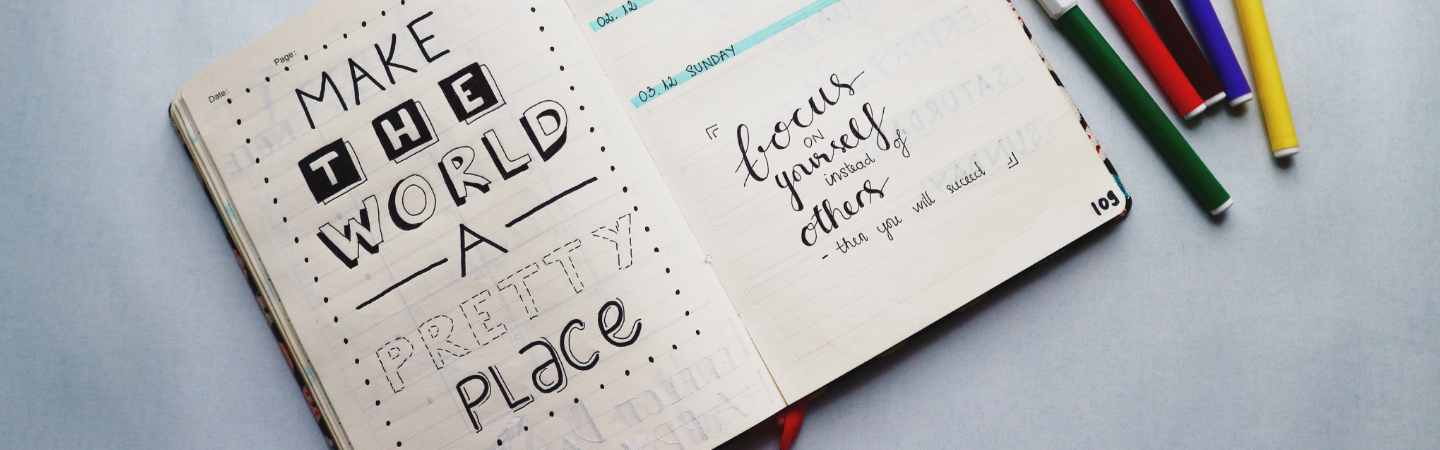 Page:
Date:
MAKE
THE
WORLD
A
PRETTY
PLace
02. 12
03. 12 SUNDAY
focus
ON
yourself
instead of
others
- then you will succeed
109